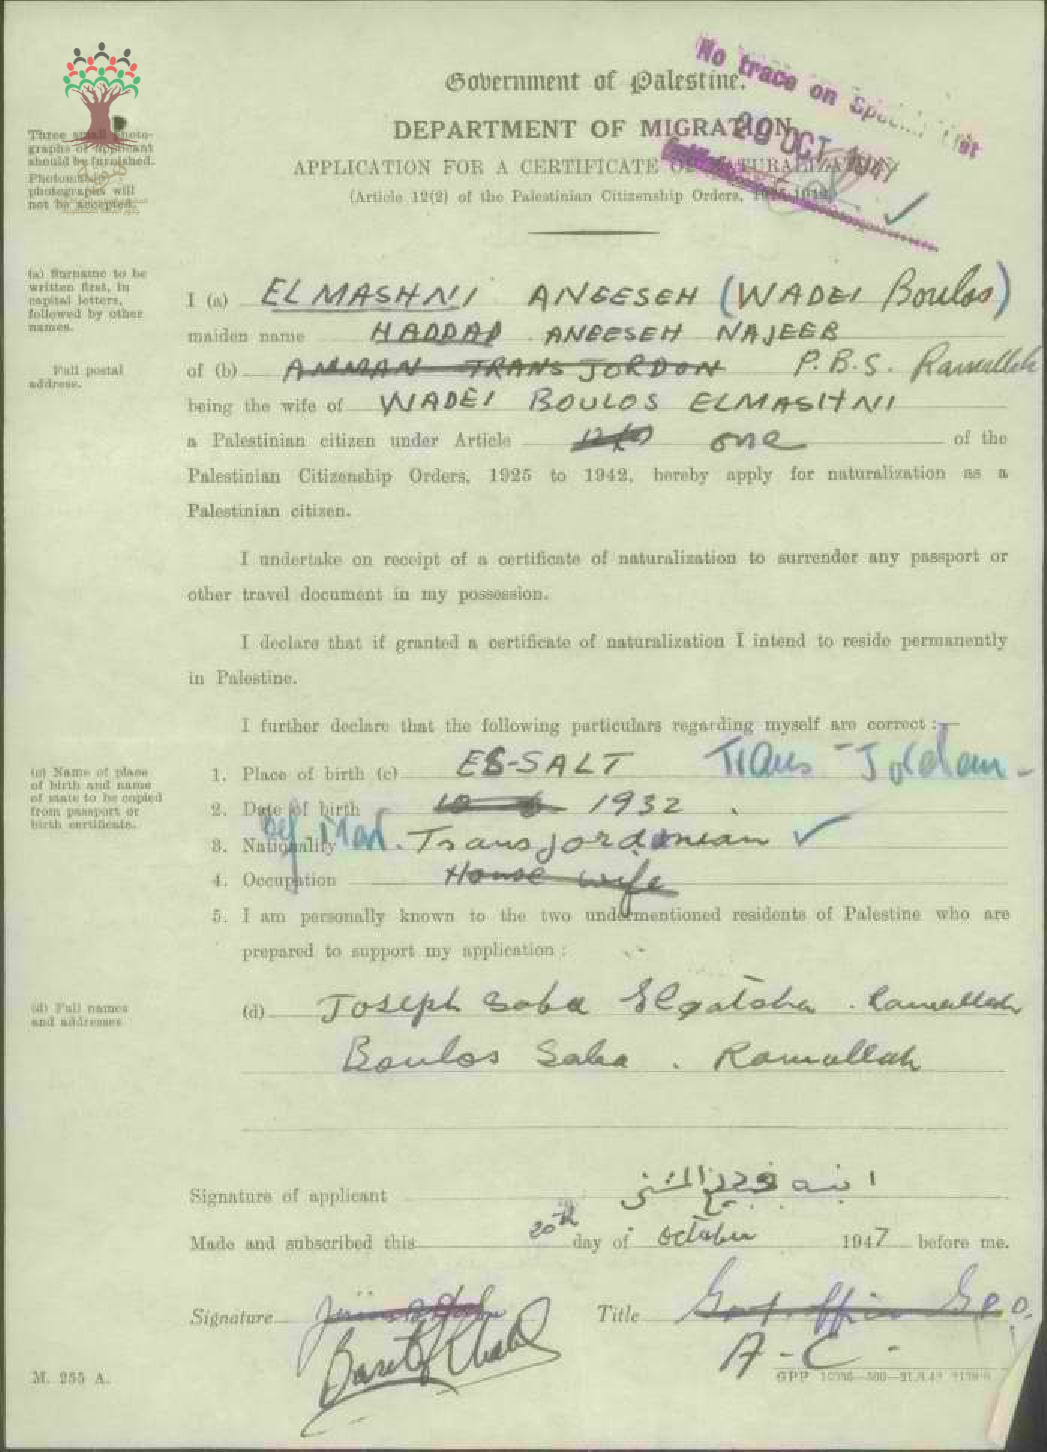 Government of Palestine.
DEPARTMENT OF MIGRATION
APPLICATION FOR A CERTIFICATE OF NATURALIZATION
(Article 12(2) of the Palestinian Citizenship Orders,
No trace on Special List
29 OCT 1947
Three small photographs of applicant should be furnished.
Photomaton photographs will not be accepted.
(a) Surname to be written first, in capital letters, followed by other names.
I (a) ELMASHNI ANEESEH (WADEI Boulos)
maiden name HADDAD ANEESEH NAJEEB
Full postal address.
of (b) AMMAN TRANS JORDON P.B.S. Ramallah
being the wife of WADEI BOULOS ELMASHNI
a Palestinian citizen under Article one of the
Palestinian Citizenship Orders, 1925 to 1942, hereby apply for naturalization as a
Palestinian citizen.
I undertake on receipt of a certificate of naturalization to surrender any passport or
other travel document in my possession.
I declare that if granted a certificate of naturalization I intend to reside permanently
in Palestine.
I further declare that the following particulars regarding myself are correct :—
(c) Name of place of birth and name of state to be copied from passport or birth certificate.
1. Place of birth (c) ES-SALT Trans-Jordan-
2. Date of birth 1932
3. Nationality Transjordanean
4. Occupation House wife
5. I am personally known to the two undermentioned residents of Palestine who are
prepared to support my application :
(d) Full names and addresses
(d) Joseph Saba Ramallah
Boulos Saba . Ramallah
Signature of applicant
Made and subscribed this 20th day of October 1947 before me.
Signature Title
A-C-
M. 255 A.